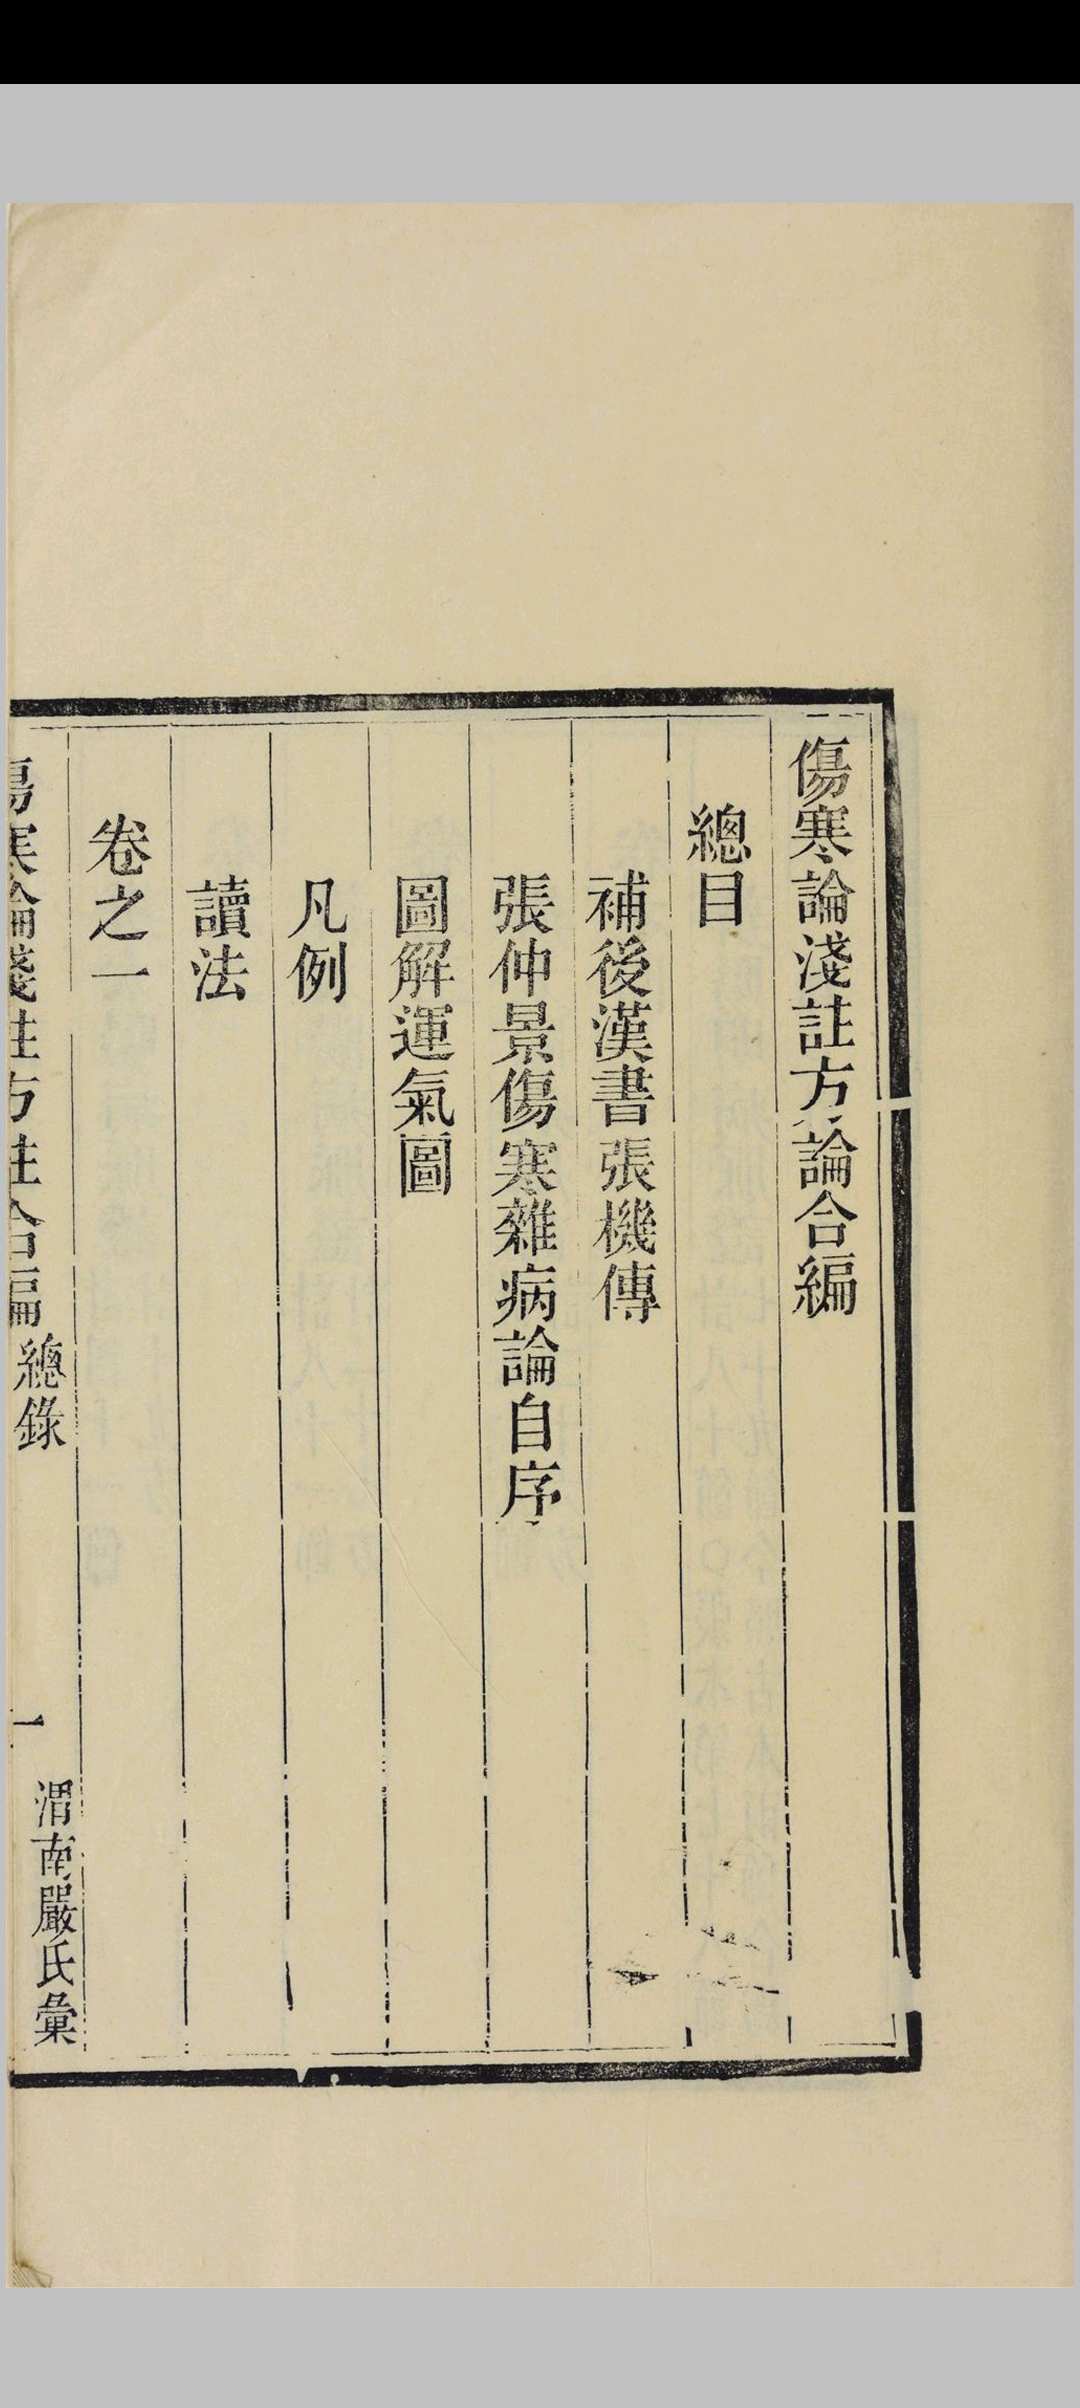 傷寒論淺註方論合編
總目
補後漢書張機傳
張仲景傷寒雜病論自序
圖解運氣圖
凡例
讀法
卷之一
傷寒論淺註方註合編 總錄 一 渭南嚴氏彙